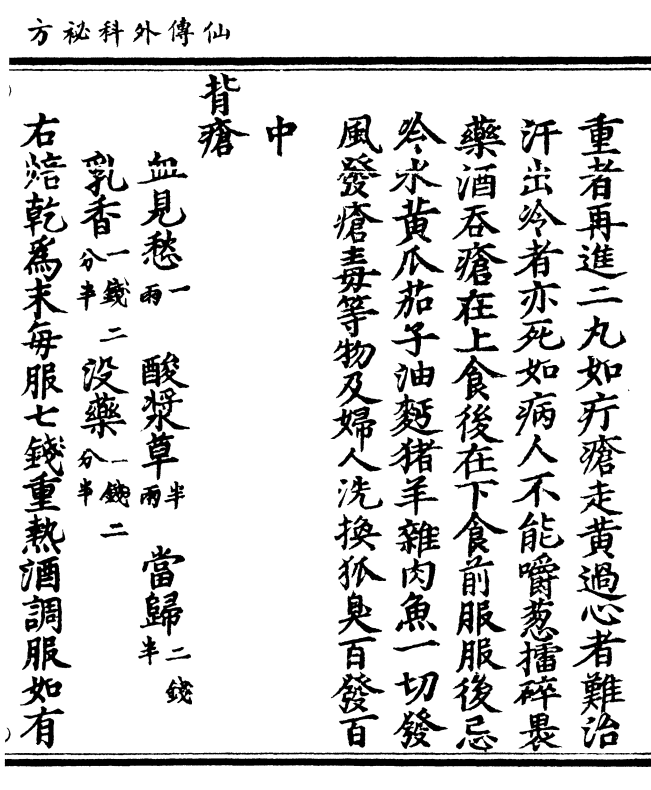 仙傳外科祕方
重者再進二丸如疔瘡走黄過心者難治
汗出冷者亦死如病人不能嚼葱擂碎裹
藥酒吞瘡在上食後在下食前服服後忌
冷水黄瓜茄子油麪猪羊雜肉魚一切發
風發瘡毒等物及婦人洗換狐臭百發百
中
背瘡
血見愁一兩 酸漿草半兩 當歸二錢半
乳香一錢二分半 没藥一錢二分半
右焙乾爲末每服七錢重熱酒調服如有